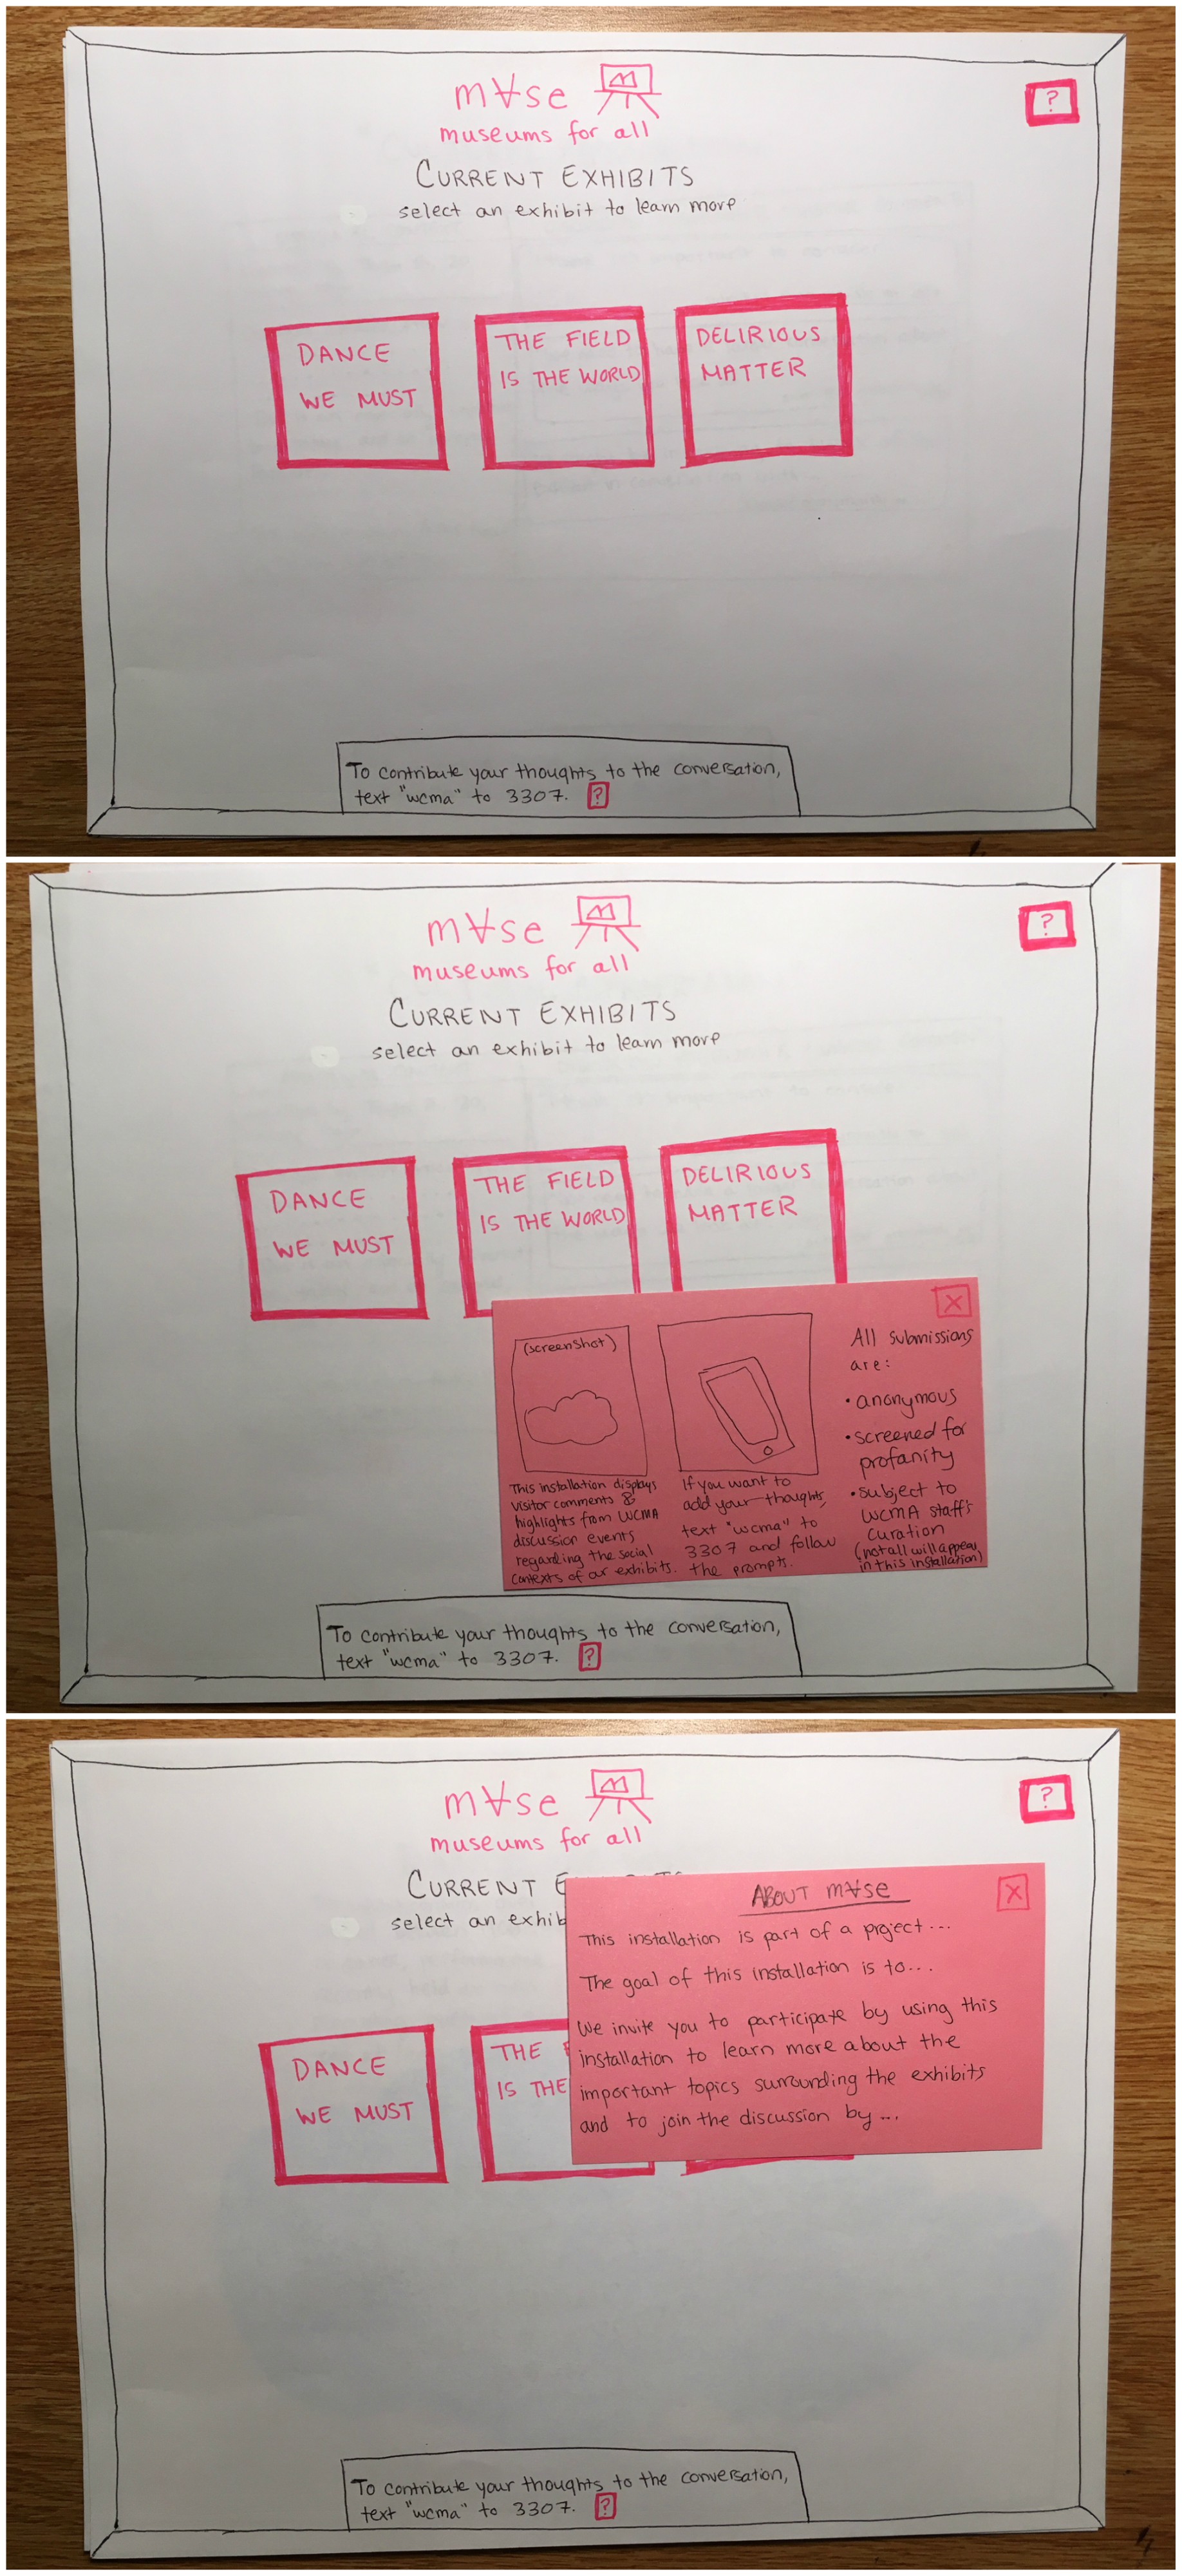 m∀se
museums for all
?
CURRENT EXHIBITS
select an exhibit to learn more
DANCE
WE MUST
THE FIELD
IS THE WORLD
DELIRIOUS
MATTER
To contribute your thoughts to the conversation,
text "wcma" to 3307. ?
m∀se
museums for all
?
CURRENT EXHIBITS
select an exhibit to learn more
DANCE
WE MUST
THE FIELD
IS THE WORLD
DELIRIOUS
MATTER
X
(screenshot)
This installation displays
visitor comments &
highlights from WCMA
discussion events
regarding the social
contexts of our exhibits.
If you want to
add your thoughts,
text "wcma" to
3307 and follow
the prompts.
All submissions
are:
• anonymous
• screened for
profanity
• subject to
WCMA staff's
curation
(not all will appear
in this installation)
To contribute your thoughts to the conversation,
text "wcma" to 3307. ?
m∀se
museums for all
?
CURRENT E
select an exhib
DANCE
WE MUST
THE
IS THE
ABOUT m∀se
X
This installation is part of a project...
The goal of this installation is to...
We invite you to participate by using this
installation to learn more about the
important topics surrounding the exhibits
and to join the discussion by...
To contribute your thoughts to the conversation,
text "wcma" to 3307. ?